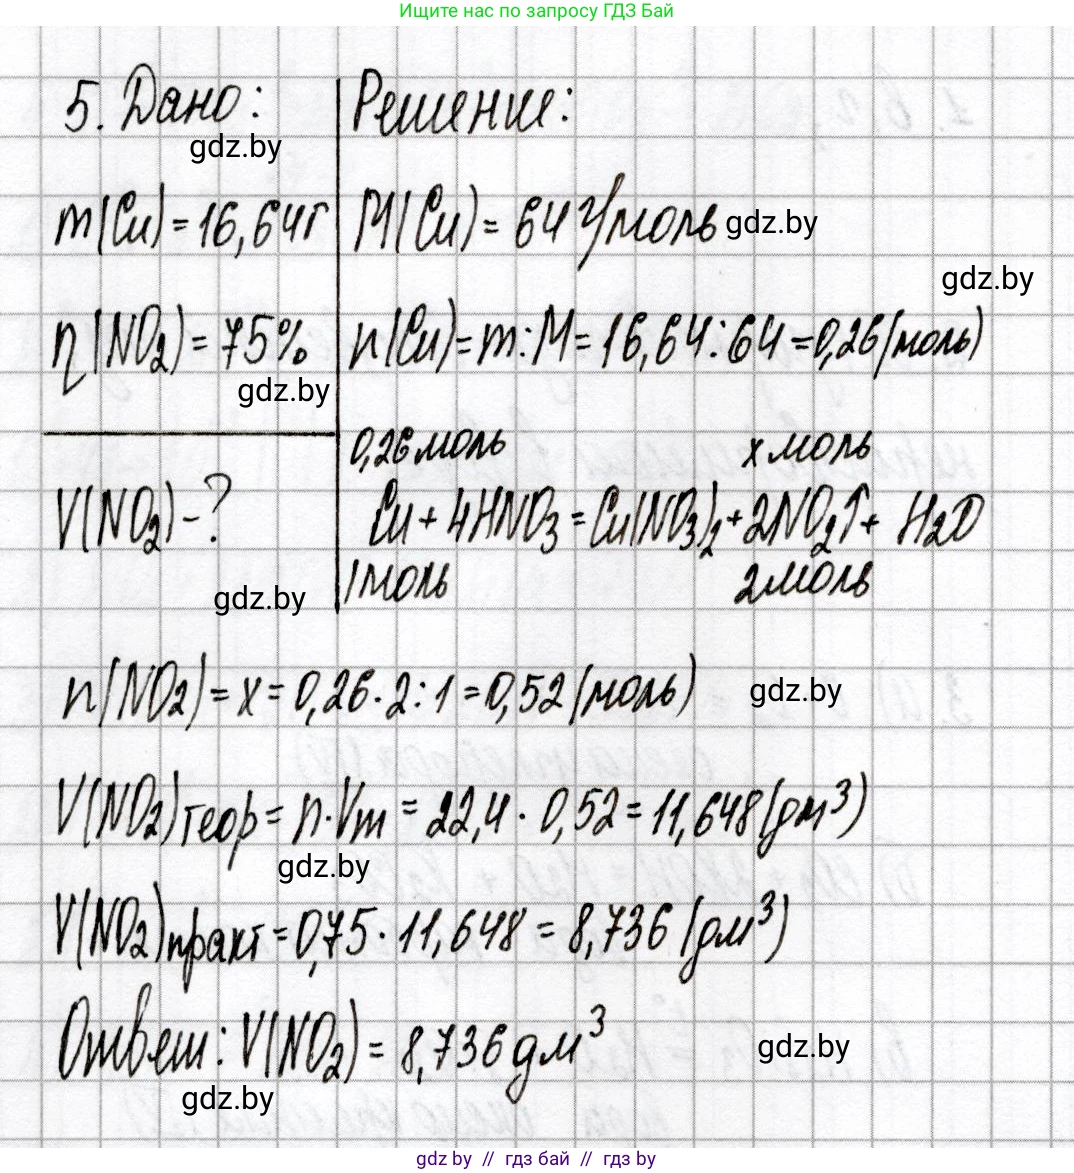 Ищите нас по запросу ГДЗ Бай
5. Дано:
Решение:
gdz.by
m(Cu) = 16,64г
M(Cu) = 64 г/моль
gdz.by
gdz.by
η(NO₂) = 75%
n(Cu) = m : M = 16,64 : 64 = 0,26 (моль)
gdz.by
0,26 моль x моль
V(NO₂) - ?
Cu + 4HNO₃ = Cu(NO₃)₂ + 2NO₂↑ + H₂O
1 моль 2 моль
gdz.by
n(NO₂) = x = 0,26 · 2 : 1 = 0,52 (моль)
gdz.by
V(NO₂)теор = n · Vm = 22,4 · 0,52 = 11,648 (дм³)
gdz.by
V(NO₂)практ = 0,75 · 11,648 = 8,736 (дм³)
Ответ: V(NO₂) = 8,736 дм³
gdz.by
gdz.by
gdz by // гдз бай // гдз by